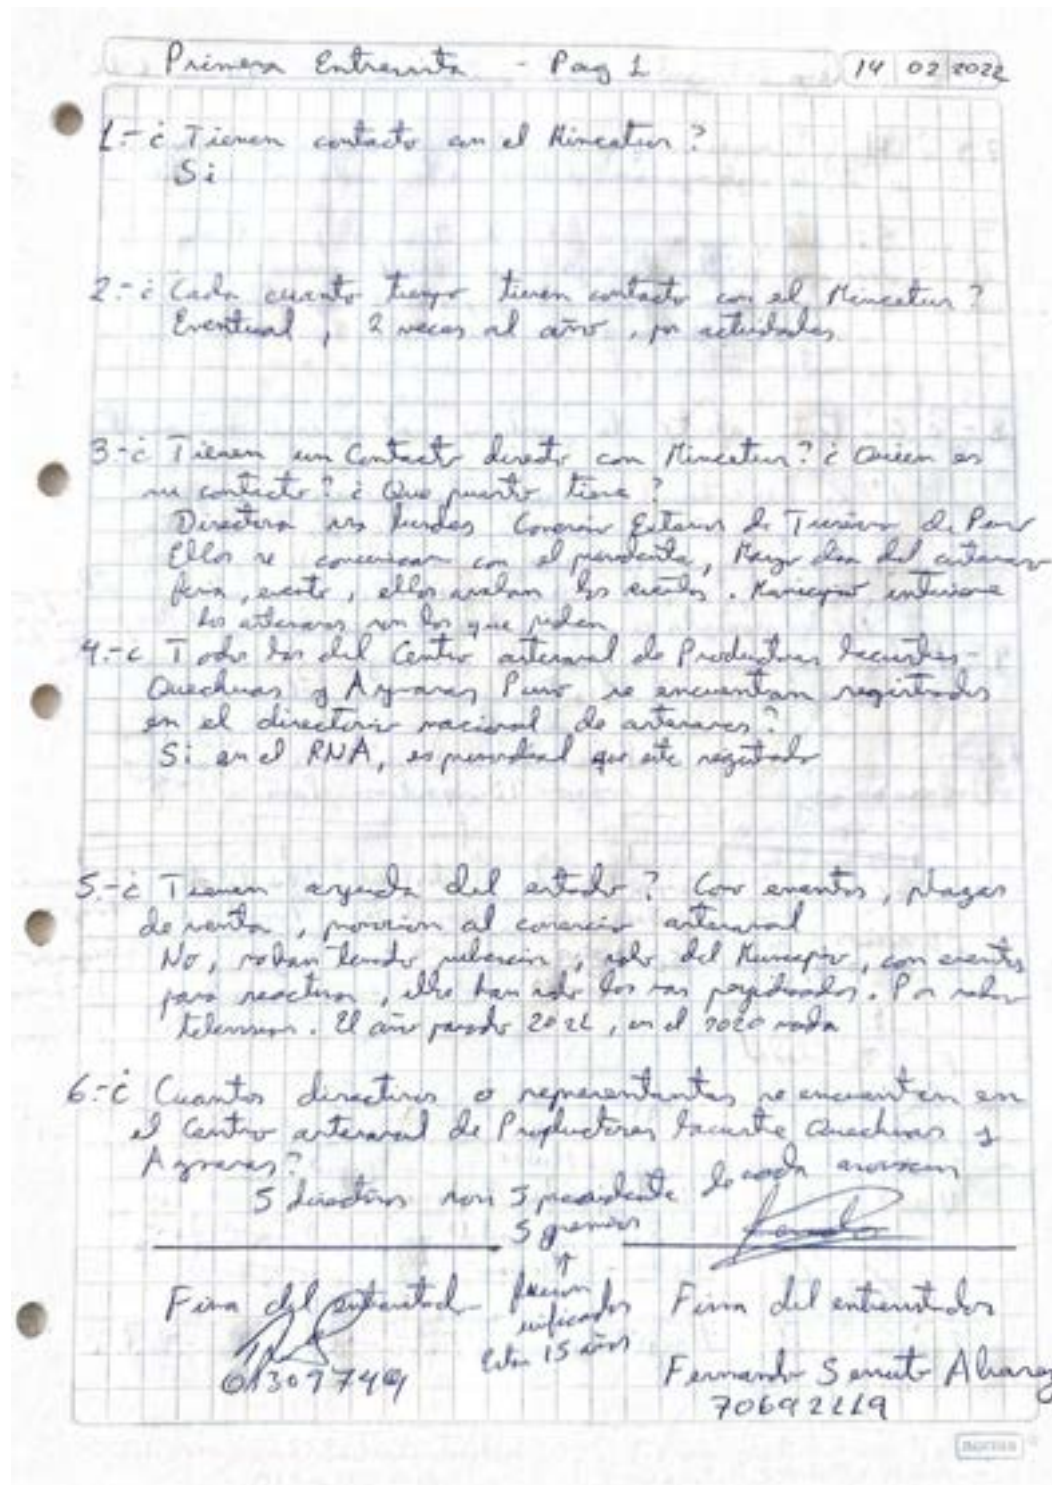 Primera Entrevista - Pag 1
14 02 2022
1.- ¿Tienen contacto con el Mincetur?
Si
2.- ¿Cada cuanto tiempo tienen contacto con el Mincetur?
Eventual, 2 veces al año, por actividades
3.- ¿Tienen un Contacto directo con Mincetur? ¿Quien es
su contacto? ¿Que puesto tiene?
Directora Comercio Exterior de Turismo de Puno
Ellos se comunican con el presidente, Mayo dia del artesano
feria, evento, ellos avalan los eventos. Municipio interviene
los artesanos son los que piden
4.- ¿Todo los del Centro artesanal de Productores lacustres-
Quechuas y Aymaras Puno se encuentran registrados
en el directorio nacional de artesanos?
Si en el RNA, es primordial que este registrado
5.- ¿Tienen ayuda del estado? Con eventos, plazas
de venta, promocion al comercio artesanal
No, solo del Municipio, con eventos
para reactivar, ellos han sido los mas perjudicados. Por radio
television. El año pasado 2021, en el 2020 nada
6.- ¿Cuantos directivos o representantes se encuentran en
el Centro artesanal de Productores lacustre Quechuas y
Aymaras?
5 directivos son 5 presidente de cada asociacion
5 gremios
↑
fueron
unificados
estan 15 años
Firma del entrevistado
01309749
Firma del entrevistador
Fernando Serruto Alvarez
70692119